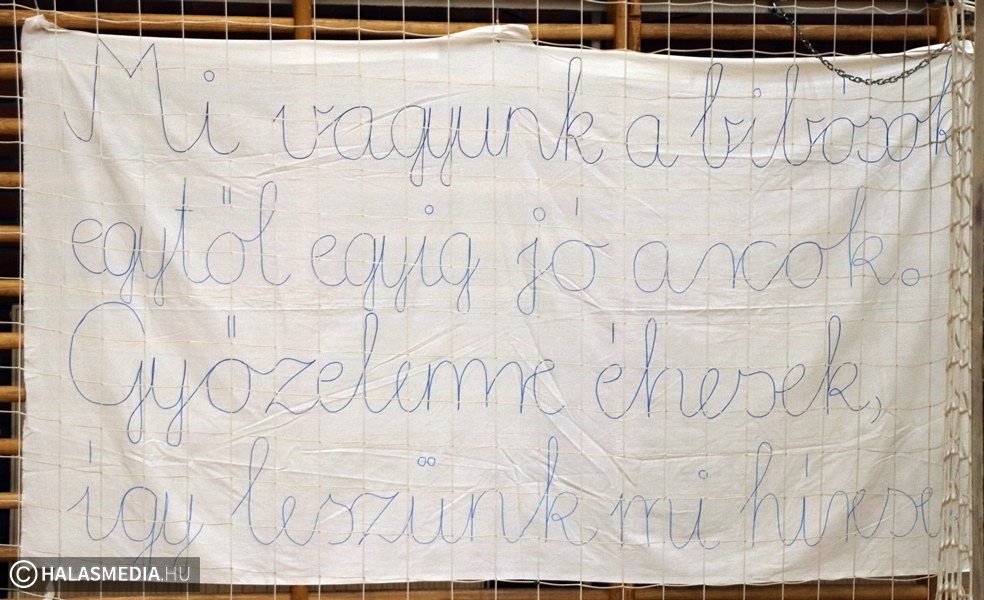 Mi vagyunk a bibósok
egytől egyig jó arcok.
Győzelemre éhesek,
így leszünk mi híresek
©HALASMEDIA.HU